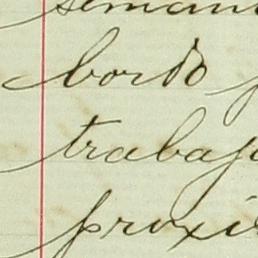 seman
bordo
trabaj
proxi